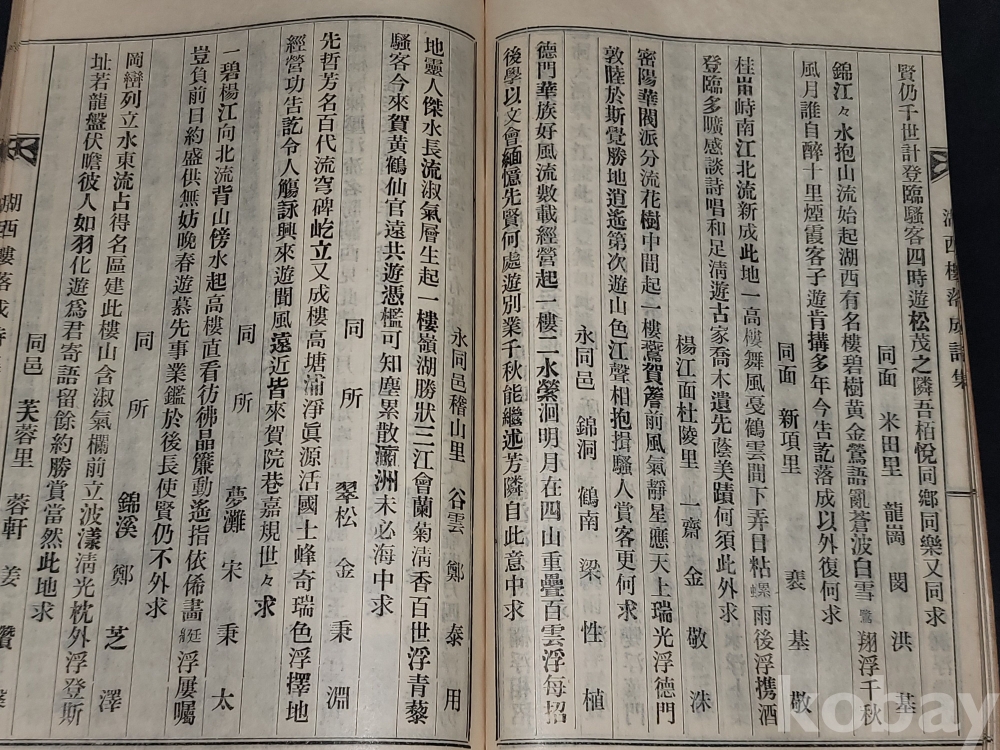 湖西樓落成詩集
賢仍千世計登臨騷客四時遊松茂之隣吾栢悅同鄉同樂又同求
同面 米田里 龍崗 閔洪基
錦江々水抱山流始起湖西有名樓碧樹黃金鶯語亂蒼波白雪鷺翔浮千秋
風月誰自醉十里煙霞客子遊肯搆多年今告訖落成以外復何求
同面 新項里 裵基敬
桂峀峙南江北流新成此地一高樓舞風戞鶴雲間下弄日粘螺雨後浮携酒
登臨多曠感談詩唱和足淸遊古家喬木遺先蔭美蹟何須此外求
楊江面杜陵里 一齋 金敬洙
密陽華閥派分流花樹中間起一樓鷰賀簷前風氣靜星應天上瑞光浮德門
敦睦於斯覺勝地逍遙第次遊山色江聲相抱揖騷人賞客更何求
永同邑 錦洞 鶴南 梁性植
德門華族好風流數載經營起一樓二水縈洄明月在四山重疊百雲浮每招
後學以文會緬憶先賢何處遊別業千秋能繼述芳隣自此意中求
永同邑稽山里 谷雲 鄭泰用
地靈人傑水長流淑氣層生起一樓嶺湖勝狀三江會蘭菊淸香百世浮靑藜
騷客今來賀黃鶴仙官遠共遊憑檻可知塵累散瀛洲未必海中求
同所 翠松 金秉淵
先哲芳名百代流穹碑屹立又成樓高塘浦淨眞源活國士峰奇瑞色浮擇地
經營功告訖令人觴詠興來遊聞風遠近皆來賀院巷嘉規世々求
同所 夢灘 宋秉太
一碧楊江向北流背山傍水起高樓直看彷彿晶簾動遙指依俙畵艇浮屢囑
豈負前日約盛供無妨晚春遊慕先事業鑑於後長使賢仍不外求
同所 錦溪 鄭芝澤
岡巒列立水東流占得名區建此樓山含淑氣欄前立波漾淸光枕外浮登斯
址若龍盤伏噡彼人如羽化遊爲君寄語留餘約勝賞當然此地求
同邑 芙蓉里 蓉軒 姜鑽
湖西樓落成詩
kobay